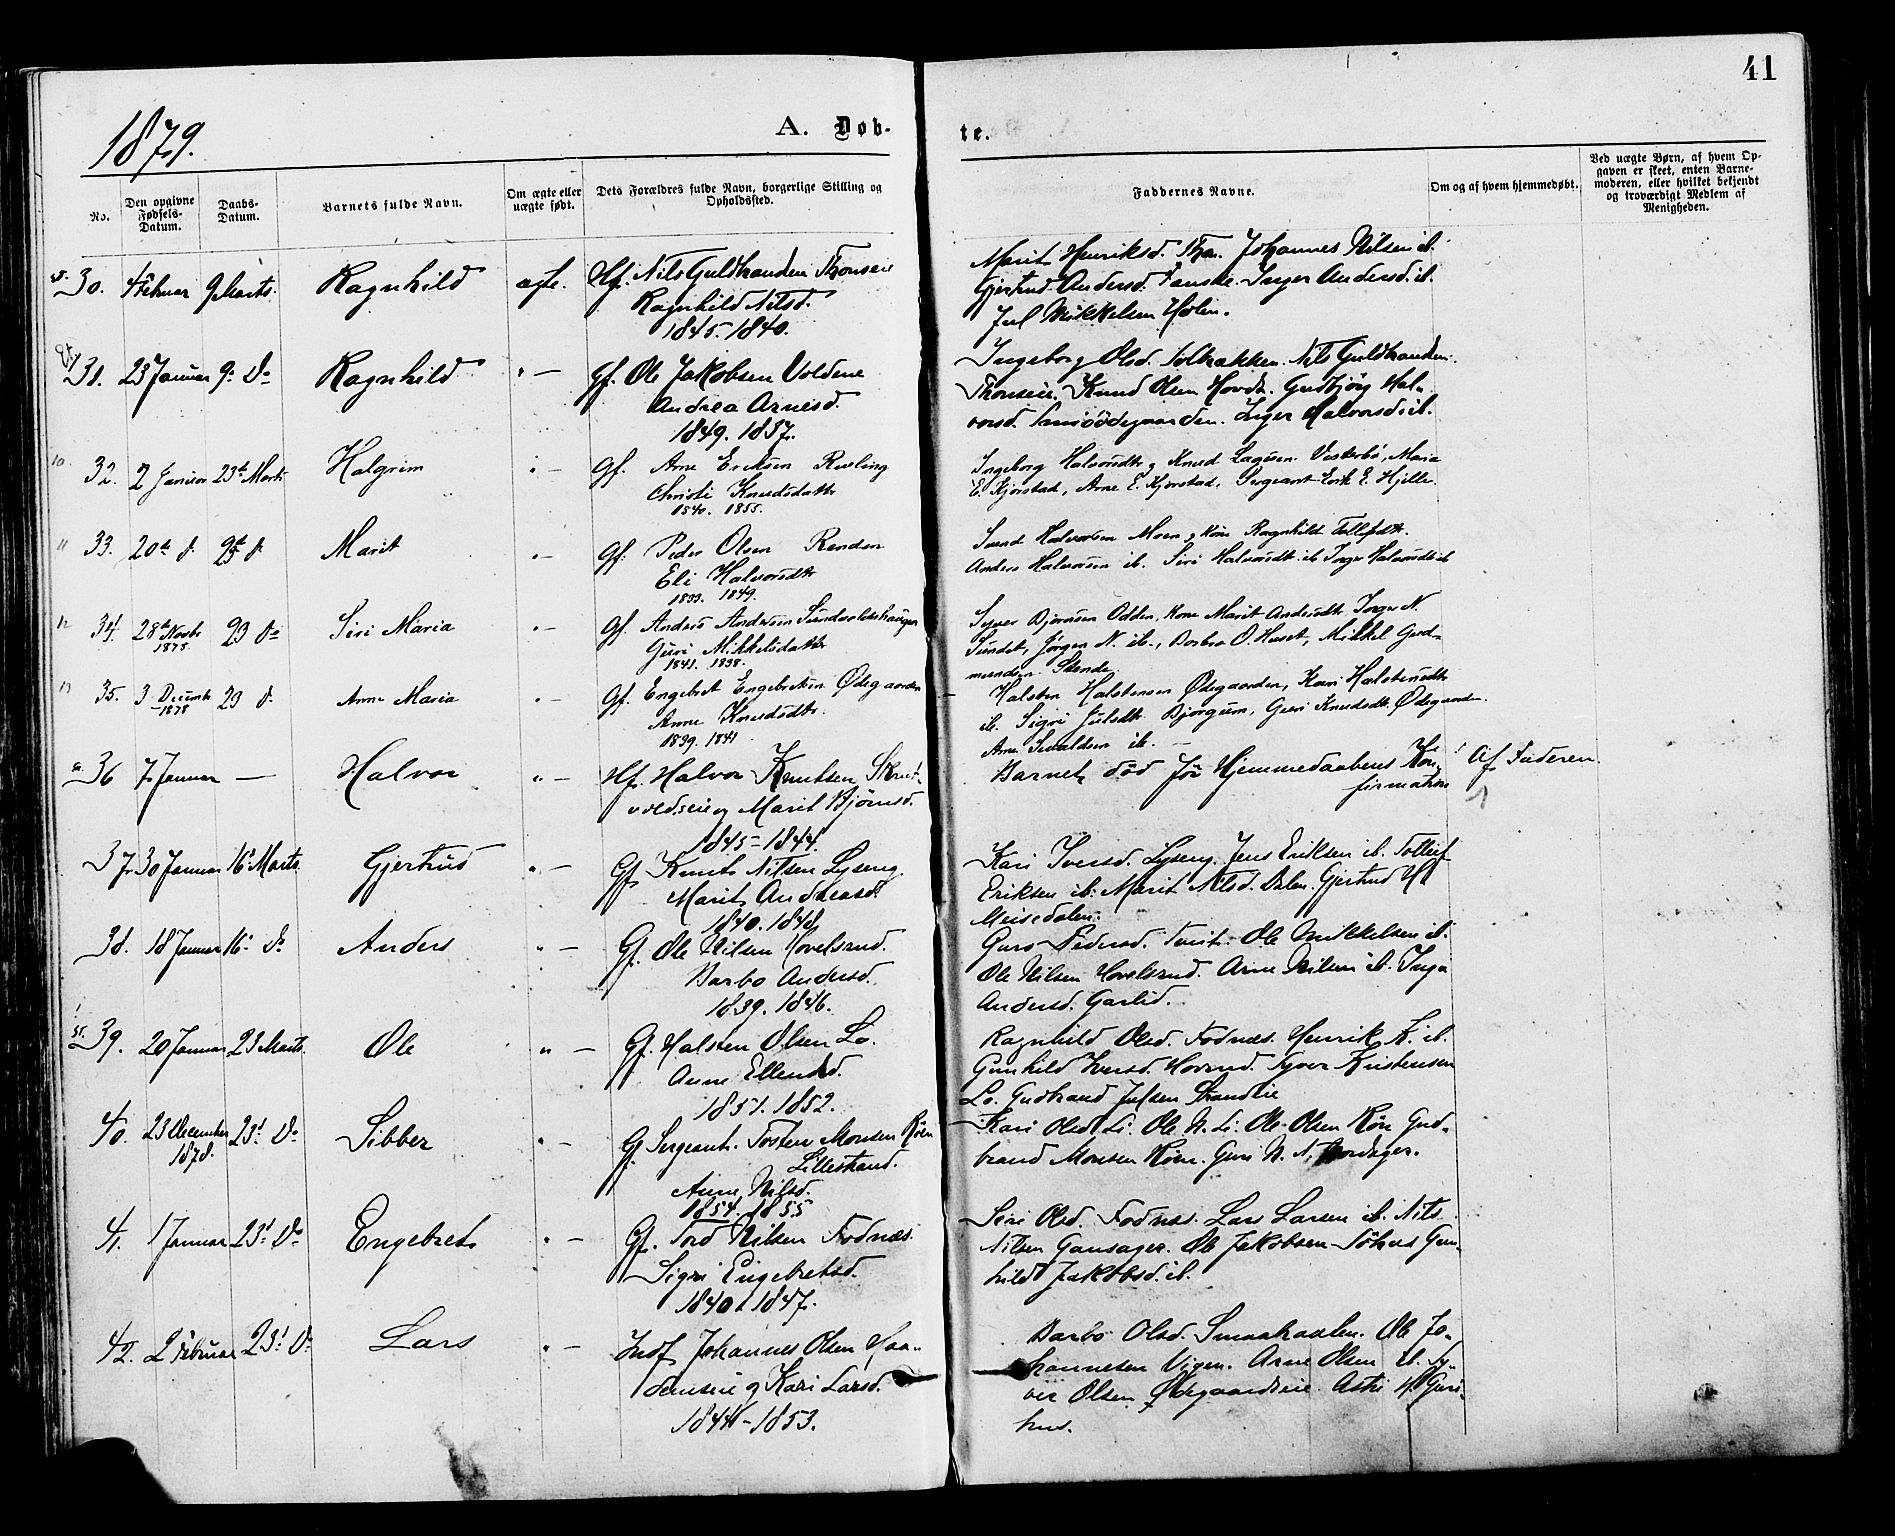 41
1879.
A. Døb-
te.
No.
Den opgivne Fødsels-Datum.
Daabs-Datum.
Barnets fulde Navn.
Om ægte eller uægte født.
Dets Forældres fulde Navn, borgerlige Stilling og Opholdssted.
Faddernes Navne.
Om og af hvem hjemmedøbt.
Ved uægte Børn, af hvem Opgaven er skeet, enten Barnemoderen, eller hvilket bekjendt og troværdigt Medlem af Menigheden.
30. 4 Februar 9 Marts. Ragnhild ægte. Hf. Nils Guldbrandsen Thonseie
Ragnhild Nilsd.
1845. 1840.
Marit Henriksd. Johannes Nilsen ib.
Gjertrud Andersd. Inger Andersd. ib.
Jul Mikkelsen Holm.
31. 23 Januar 9 Do Ragnhild " — Gf. Ole Jakobsen Voldene
Andrea Arnesd.
1849. 1857.
Ingeborg Olsd. Nils Guldbrandsen
Thonseie. Knud Olsen Gudbjør Hal-
vorsd. Inger Halvorsd. ib.
10. 32. 2 Januar 23de Marts Halgrim " — Gf. Arne Eriksen Rusling
Christi Knudsdatter
1840. 1855.
Ingeborg Halvorsdtr, Knud Vesterbø, Maria
E. Kjørstad, Arne E. Kjørstad, Sergeant Erik E. Hjelle.
11 33. 20de d. 23 d. Marit " — Gf. Peder Olsen Renden
Eli Halvorsdtr
1833. 1849.
Svend Halvorsen Moen, Kone Ragnhild
Anders Halvorsen ib. Siri Halvorsdtr. ib Inger Halvorsdtr ib
12 34. 28de Novbr 1878. 23 Do Siri Maria " — Gf. Anders Andersen
Guri Mikkelsdatter
1841. 1838.
Syver Bjørnsen Odden, Kone Marit Andersdtr Inger N.
Sundet, Jørgen N. ib., Barbro O. Huset, Mikkel Gud-
mundsen
13 35. 3 December 1878 23 d. Anne Maria " — Gf. Engebret Engebretsen Ødegaarden
Anne Knudsdtr.
1839. 1841
Halsten Halstensen Ødegaarden, Kari Halstensdtr
ib. Sigri Julsdtr. Bjørgum, Guri Knudsdtr. Ødegaarden.
Arne ib.
36 7 Januar — Halvor " — Hf. Halvor Knutsen Skrut-
voldseie og Marit Bjørnsd.
1845 - 1844.
Barnet død før Hjemmedaabens Kon-
firmation
Af Faderen
37. 30 Januar 16 Marts. Gjertrud " — Gf. Knut Nilsen Lyseng.
Marit Andreasd.
1840. 1848.
Kari Iversd. Lyseng. Jens Eriksen ib. Tollef
Eriksen ib. Marit Nilsd. Dalen. Gjertrud
Meisedalen.
38. 18 Januar 16. Do Anders " — Gf. Ole Nilsen Hovelsrud.
Barbo Andersd.
1839. 1846.
Guro Pedersd. Tveit. Ole Mikkelsen ib.
Ole Nilsen Hovelsrud. Arne Nilsen ib. Inga
Andersd. Garlid.
39. 20 Januar 23 Marts. Ole " — Gf. Halsten Olsen Lo.
Anne Ellendsd.
1851. 1852.
Ragnhild Olsd. Fodnæs. Henrik K. ib.
Gunhild Iversd. Syver Kristensen
Lo. Gudbrand Julsen Strandeie
40. 23 December 1878. 23 Do Sibber " — Gf. Sergeant. Torsten Monsen Røen
Lillestrand.
Anne Nilsd.
1854. 1855
Kari Olsd. Li. Ole N. Li. Ole Olsen Røn Gud-
brand Monsen Røen. Guri N. N.
41. 1 Januar 23 Do Engebret " — Gf. Tord Nilsen Fodnæs.
Sigri Engebretsd.
1840. 1847.
Siri Olsd. Fodnæs. Lars Larsen ib. Nils
Nilsen Gansager. Ole Jakobsen Gun-
hild Jakobsd. ib.
42. 2 Februar 23 Do Lars " — Indf Johannes Olsen
og Kari Larsd.
1844 - 1853.
Barbo Olsd. Ole Jo-
hannesen Vigen. Arne Olsen ib. Sy-
ver Olsen Ødegaardseie. Astri Guri-
hus.